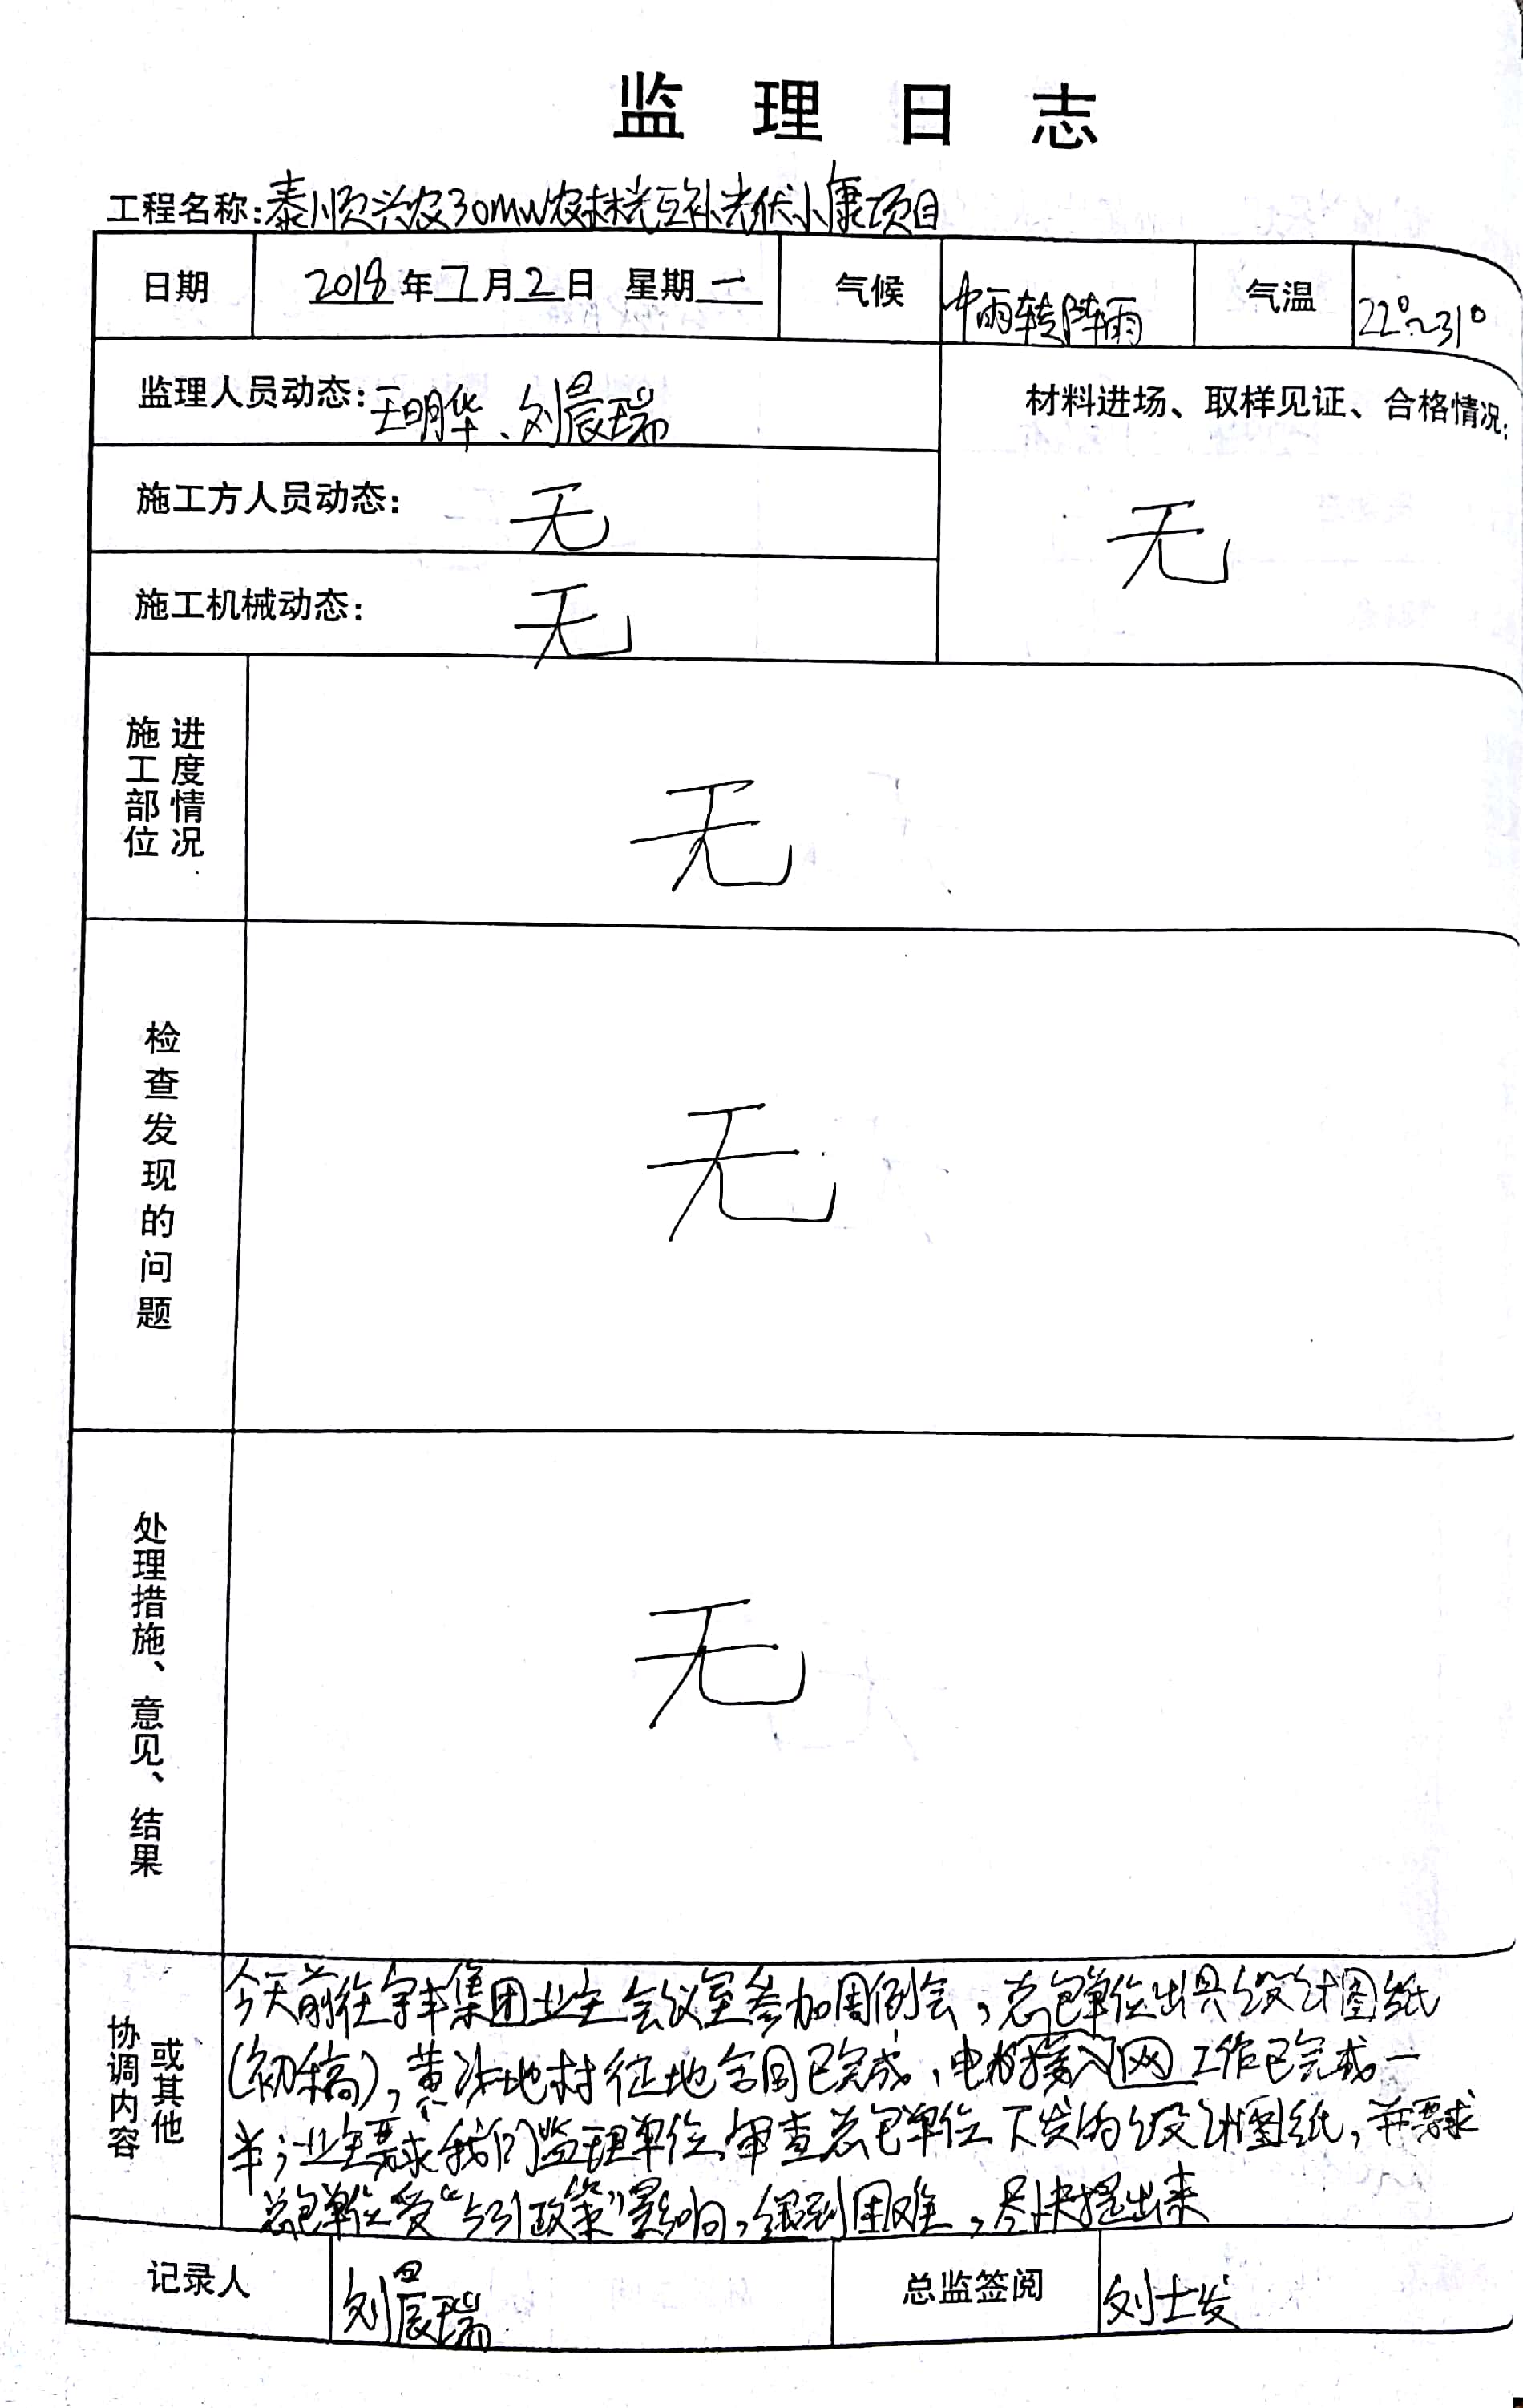 监理日志
工程名称:泰顺兴农30MW农林光互补光伏小康项目
日期 2018年7月2日 星期一 气候 中雨转阵雨 气温 22°~31°
监理人员动态:王明华、刘晨瑞 材料进场、取样见证、合格情况:
施工方人员动态: 无
无
施工机械动态: 无
施工部位 进度情况 无
检查发现的问题 无
处理措施、意见、结果 无
协调内容 或其他
今天前往宇丰集团业主会议室参加周例会,总包单位出具设计图纸
(初稿),地村征地合同已完成、电接入网工作已完成一
半;业主要求我们监理单位审查总包单位下发的设计图纸,并要求
总包单位受“531政策”影响,遇到困难,尽快提出来
记录人 刘晨瑞 总监签阅 刘士发